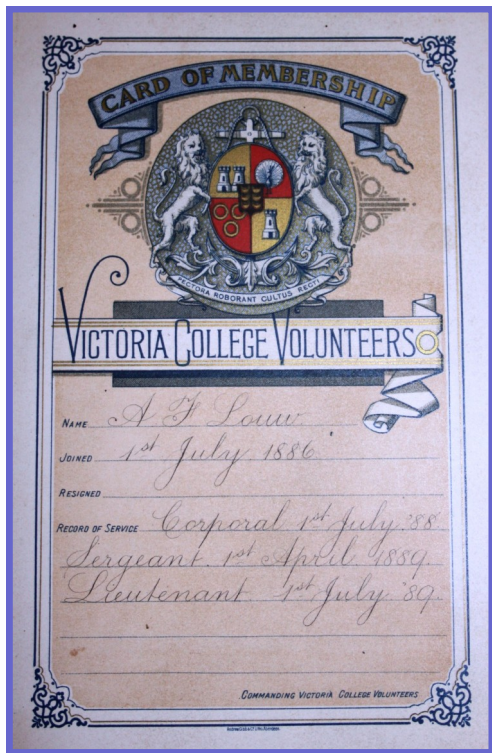 CARD OF MEMBERSHIP
PECTORA ROBORANT CULTUS RECTI
VICTORIA COLLEGE VOLUNTEERS
NAME A F Louw
JOINED 1st July 1886
RESIGNED
RECORD OF SERVICE Corporal 1st July '88
Sergeant 1st April 1889.
Lieutenant 1st July '89.
COMMANDING VICTORIA COLLEGE VOLUNTEERS